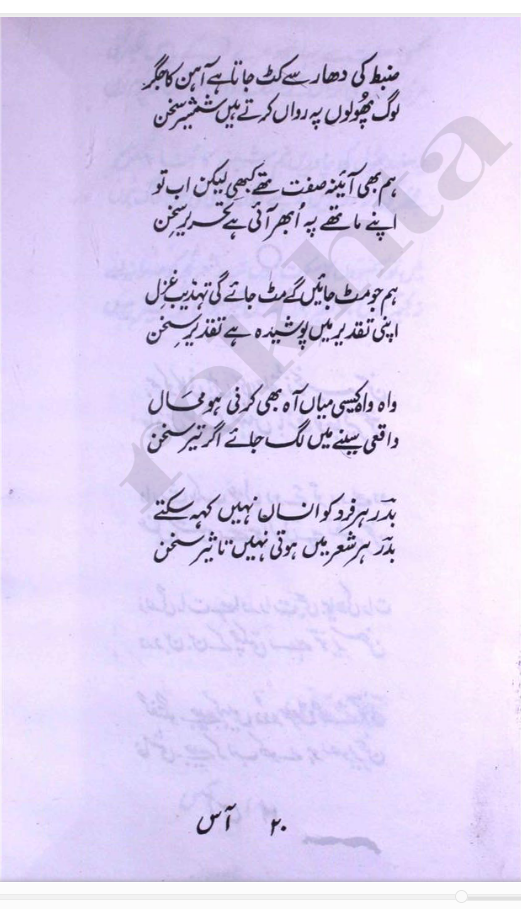 ضبط کی دھار سے کٹ جاتا ہے آہن کا جگر
لوگ پھولوں پہ رواں کرتے ہیں شمشیرِ سخن
ہم بھی آئینہ صفت تھے کبھی لیکن اب تو
اپنے ماتھے پہ اُبھر آئی ہے تحریرِ سخن
ہم جو مٹ جائیں گے مٹ جائے گی تہذیبِ غزل
اپنی تقدیر میں پوشیدہ ہے تقدیرِ سخن
واہ واہ کیسی میاں آہ بھی کرنی ہو محال
واقعی سینے میں لگ جائے اگر تیرِ سخن
بدؔر ہر فرد کو انسان نہیں کہہ سکتے
بدؔر ہر شعر میں ہوتی نہیں تاثیرِ سخن
۲۰ آس
rekhta